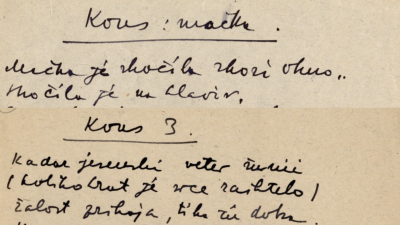 Kons : mačka.
Mačka je skočila skozi okno..
skočila je na klavir.
Kons 3.
Kadar jesenski veter
(kolikokrat je srce)
žalost prihaja, tiha doba